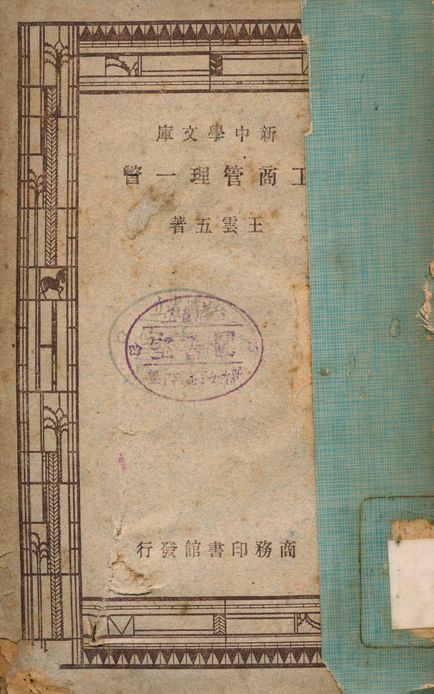 新中學文庫
工商管理一瞥
王雲五著
圖書室
商務印書館發行